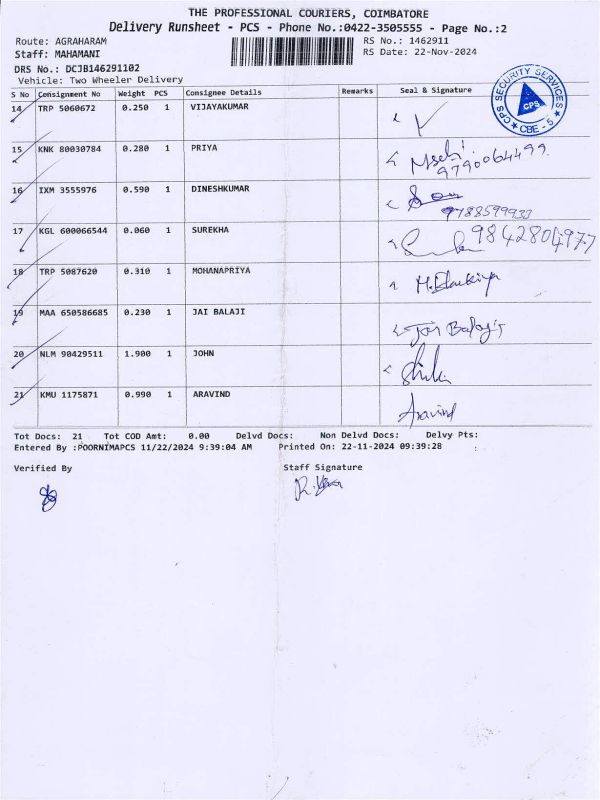 THE PROFESSIONAL COURIERS, COIMBATORE
Delivery Runsheet - PCS - Phone No.:0422-3505555 - Page No.:2
Route: AGRAHARAM
RS No.: 1462911
Staff: MAHAMANI
RS Date: 22-Nov-2024
DRS No.: DCJB146291102
Vehicle: Two Wheeler Delivery
S No Consignment No Weight PCS Consignee Details Remarks Seal & Signature
14 TRP 5060672 0.250 1 VIJAYAKUMAR
15 KNK 80030784 0.280 1 PRIYA
9790064499
16 IXM 3555976 0.590 1 DINESHKUMAR
9788599933
17 KGL 600066544 0.060 1 SUREKHA 9842804977
18 TRP 5087620 0.310 1 MOHANAPRIYA
19 MAA 650586685 0.230 1 JAI BALAJI Jai Balaji
20 NLM 90429511 1.900 1 JOHN
21 KMU 1175871 0.990 1 ARAVIND Aravind
CPS SECURITY SERVICES
CPS
CBE - 5
Tot Docs: 21 Tot COD Amt: 0.00 Delvd Docs: Non Delvd Docs: Delvy Pts:
Entered By :POORNIMAPCS 11/22/2024 9:39:04 AM Printed On: 22-11-2024 09:39:28
Verified By
Staff Signature